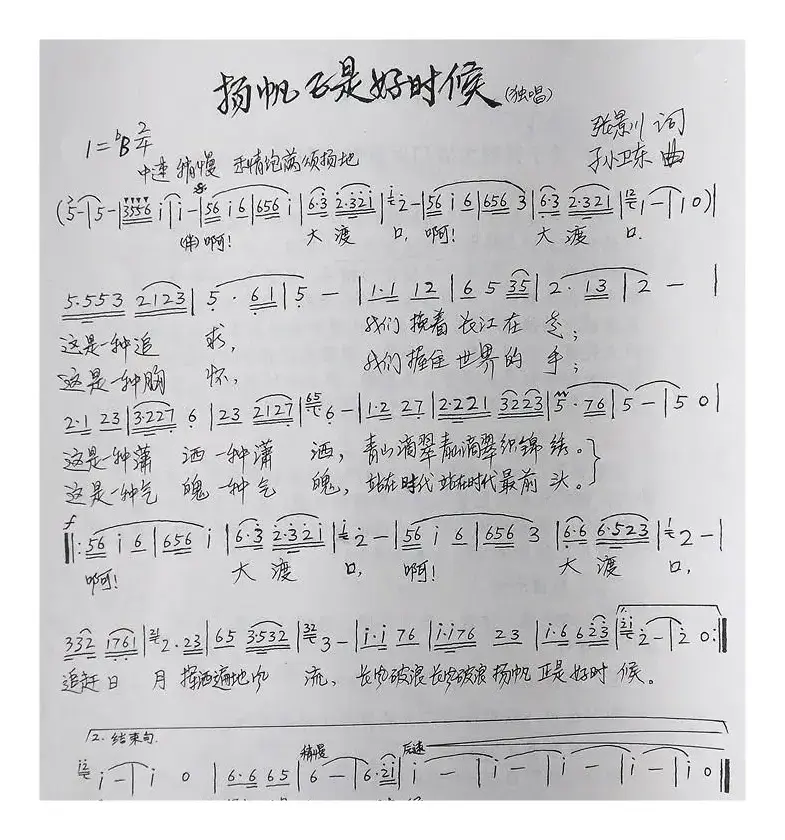 扬帆正是好时候 (独唱)
张景川 词
1=♭B 2/4
中速 稍慢 热情饱满颂扬地
孙卫东 曲
啊! 大渡口, 啊! 大渡口.
5·553 2123 | 5 · 61 | 5 — | 1·1 12 | 6 5 35 | 2 · 13 | 2 — |
这是一种追求, 我们挽着长江在走;
这是一种胸怀, 我们握住世界的手;
2·1 23 | 3·227 6 | 23 2127 | 6 — | 1·2 27 | 2·221 3223 | 5 · 76 | 5 — | 5 0 |
这是一种潇洒一种潇洒, 青山滴翠青山滴翠织锦绣。
这是一种气魄一种气魄, 站在时代站在时代最前头。
f
‖: 56 i 6 | 656 i | 6·3 2·321 | 2 — | 56 i 6 | 656 3 | 6·6 6·523 | 2 — |
啊! 大渡口, 啊! 大渡口,
332 1761 | 2·23 | 65 3·532 | 3 — | i·i 76 | i·i76 23 | i·6 623 | 2 — | 2 0 :‖
追赶日月挥洒遍地风流, 长风破浪长风破浪扬帆正是好时候。
2. 结束句.
稍慢
i — | i 0 | 6·6 65 | 6 — | 6·2i | i — | i — | i — | i — | i 0 ‖